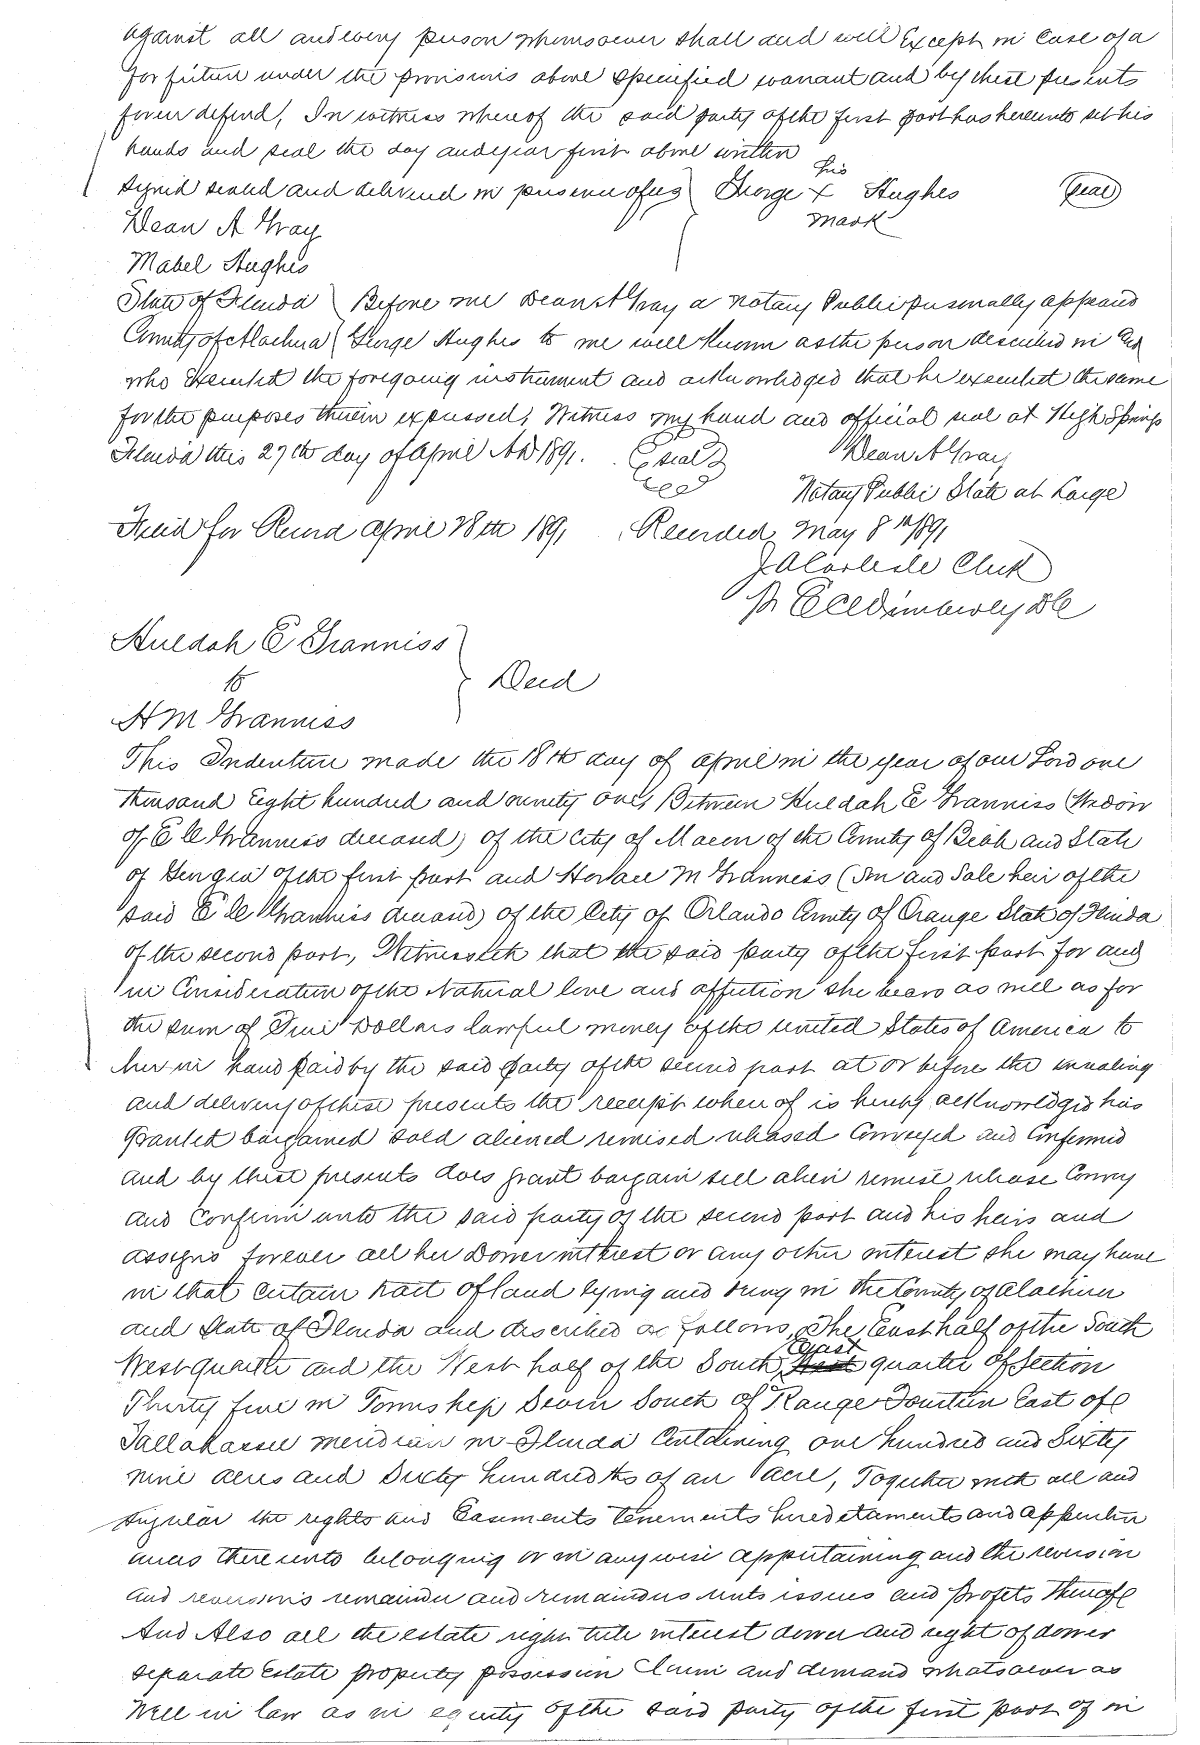 against all and every person whomsoever shall and will Except in Case of a
forfiture under the provisions above specified warrant and by these presents
forever defend, In witness whereof the said party of the first part has hereunto set his
hands and seal the day and year first above written
his
Signed sealed and delivered in presence of us } George X Hughes (seal)
mark
Dean A Gray
Mabel Hughes
State of Florida } Before me Dean A Gray a Notary Public personally appeared
County of Alachua } George Hughes to me well known as the person described in and
who Executed the foregoing instrument and acknowledged that he executed the same
for the purposes therein expressed, Witness my hand and official seal at High Springs
Florida this 27th day of April AD 1891. (seal) Dean A Gray
Notary Public State at Large
Filed for Record april 28th 1891 Recorded May 8th 1891
J A Carlisle Clerk
Huldah E Granniss
to } Deed
H M Granniss
This Indenture made the 18th day of april in the year of our Lord one
thousand Eight hundred and ninety one, Between Huldah E Granniss (Widow
of E C Granniss deceased) of the City of Macon of the County of Bibb and State
of Georgia of the first part and Horace M Granniss (Son and Sole heir of the
said E C Granniss deceased) of the City of Orlando County of Orange State of Florida
of the second part, Witnesseth that the said party of the first part for and
in Consideration of the Natural love and affection she bears as well as for
the sum of Five Dollars lawful money of the United States of America to
her in hand paid by the said party of the second part at or before the ensealing
and delivery of these presents the receipt whereof is hereby acknowledged has
Granted bargained sold aliened remised released Conveyed and Confirmed
and by these presents does grant bargain sell alien remise release Convey
and Confirm unto the said party of the second part and his heirs and
assigns forever all her Dower interest or any other interest she may have
in that certain tract of land lying and being in the County of Alachua
and State of Florida and described as follows, The East half of the South
East
West quarter and the West half of the South quarter of Section
Thirty five in Township Seven South of Range Fourteen East of
Tallahassee meridian in Florida Containing one hundred and Sixty
nine acres and Sixty hundredths of an acre, Together with all and
singular the rights and Easements tenements heredetaments and appurten
ances thereunto belonging or in anywise appertaining and the reversion
and reversions remainder and remainders rents issues and profets thereof
And Also all the estate right title interest dower and right of dower
separate Estate property possession Claim and demand whatsoever as
Well in law as in equity of the said party of the first part of in